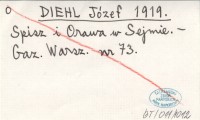 DIEHL Józef 1919.
Spisz i Orawa w Sejmie. –
Gaz. Warsz. nr 73.